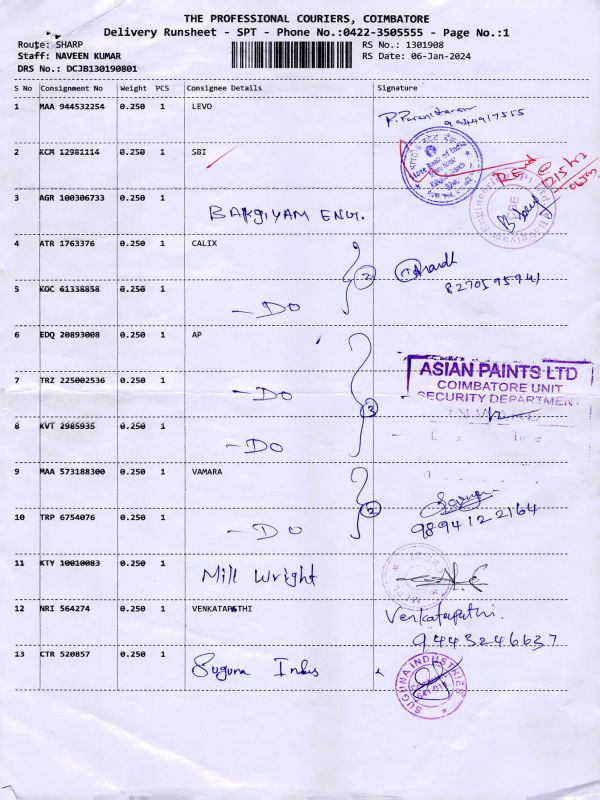 THE PROFESSIONAL COURIERS, COIMBATORE
Delivery Runsheet - SPT - Phone No.:0422-3505555 - Page No.:1
Route: SHARP
Staff: NAVEEN KUMAR
DRS No.: DCJB130190801
RS No.: 1301908
RS Date: 06-Jan-2024
S No Consignment No Weight PCS Consignee Details Signature
1 MAA 944532254 0.250 1 LEVO
9944917555
2 KCM 12981114 0.250 1 SBI
3 AGR 100306733 0.250 1 BAKGIYAM ENU.
4 ATR 1763376 0.250 1 CALIX
2
8270595941
5 KOC 61338858 0.250 1 - DO
6 EDQ 20893008 0.250 1 AP
ASIAN PAINTS LTD
COIMBATORE UNIT
SECURITY DEPARTMENT
7 TRZ 225002536 0.250 1 - DO
3
8 KVT 2985935 0.250 1 - DO
9 MAA 573188300 0.250 1 VAMARA
2
9894122164
10 TRP 6754076 0.250 1 - DO
11 KTY 10010083 0.250 1 Mill Wright
12 NRI 564274 0.250 1 VENKATAPATHI Venkatapathi.
9443246637
13 CTR 520857 0.250 1 Suguna Indus
SUGUNA INDUSTRIES